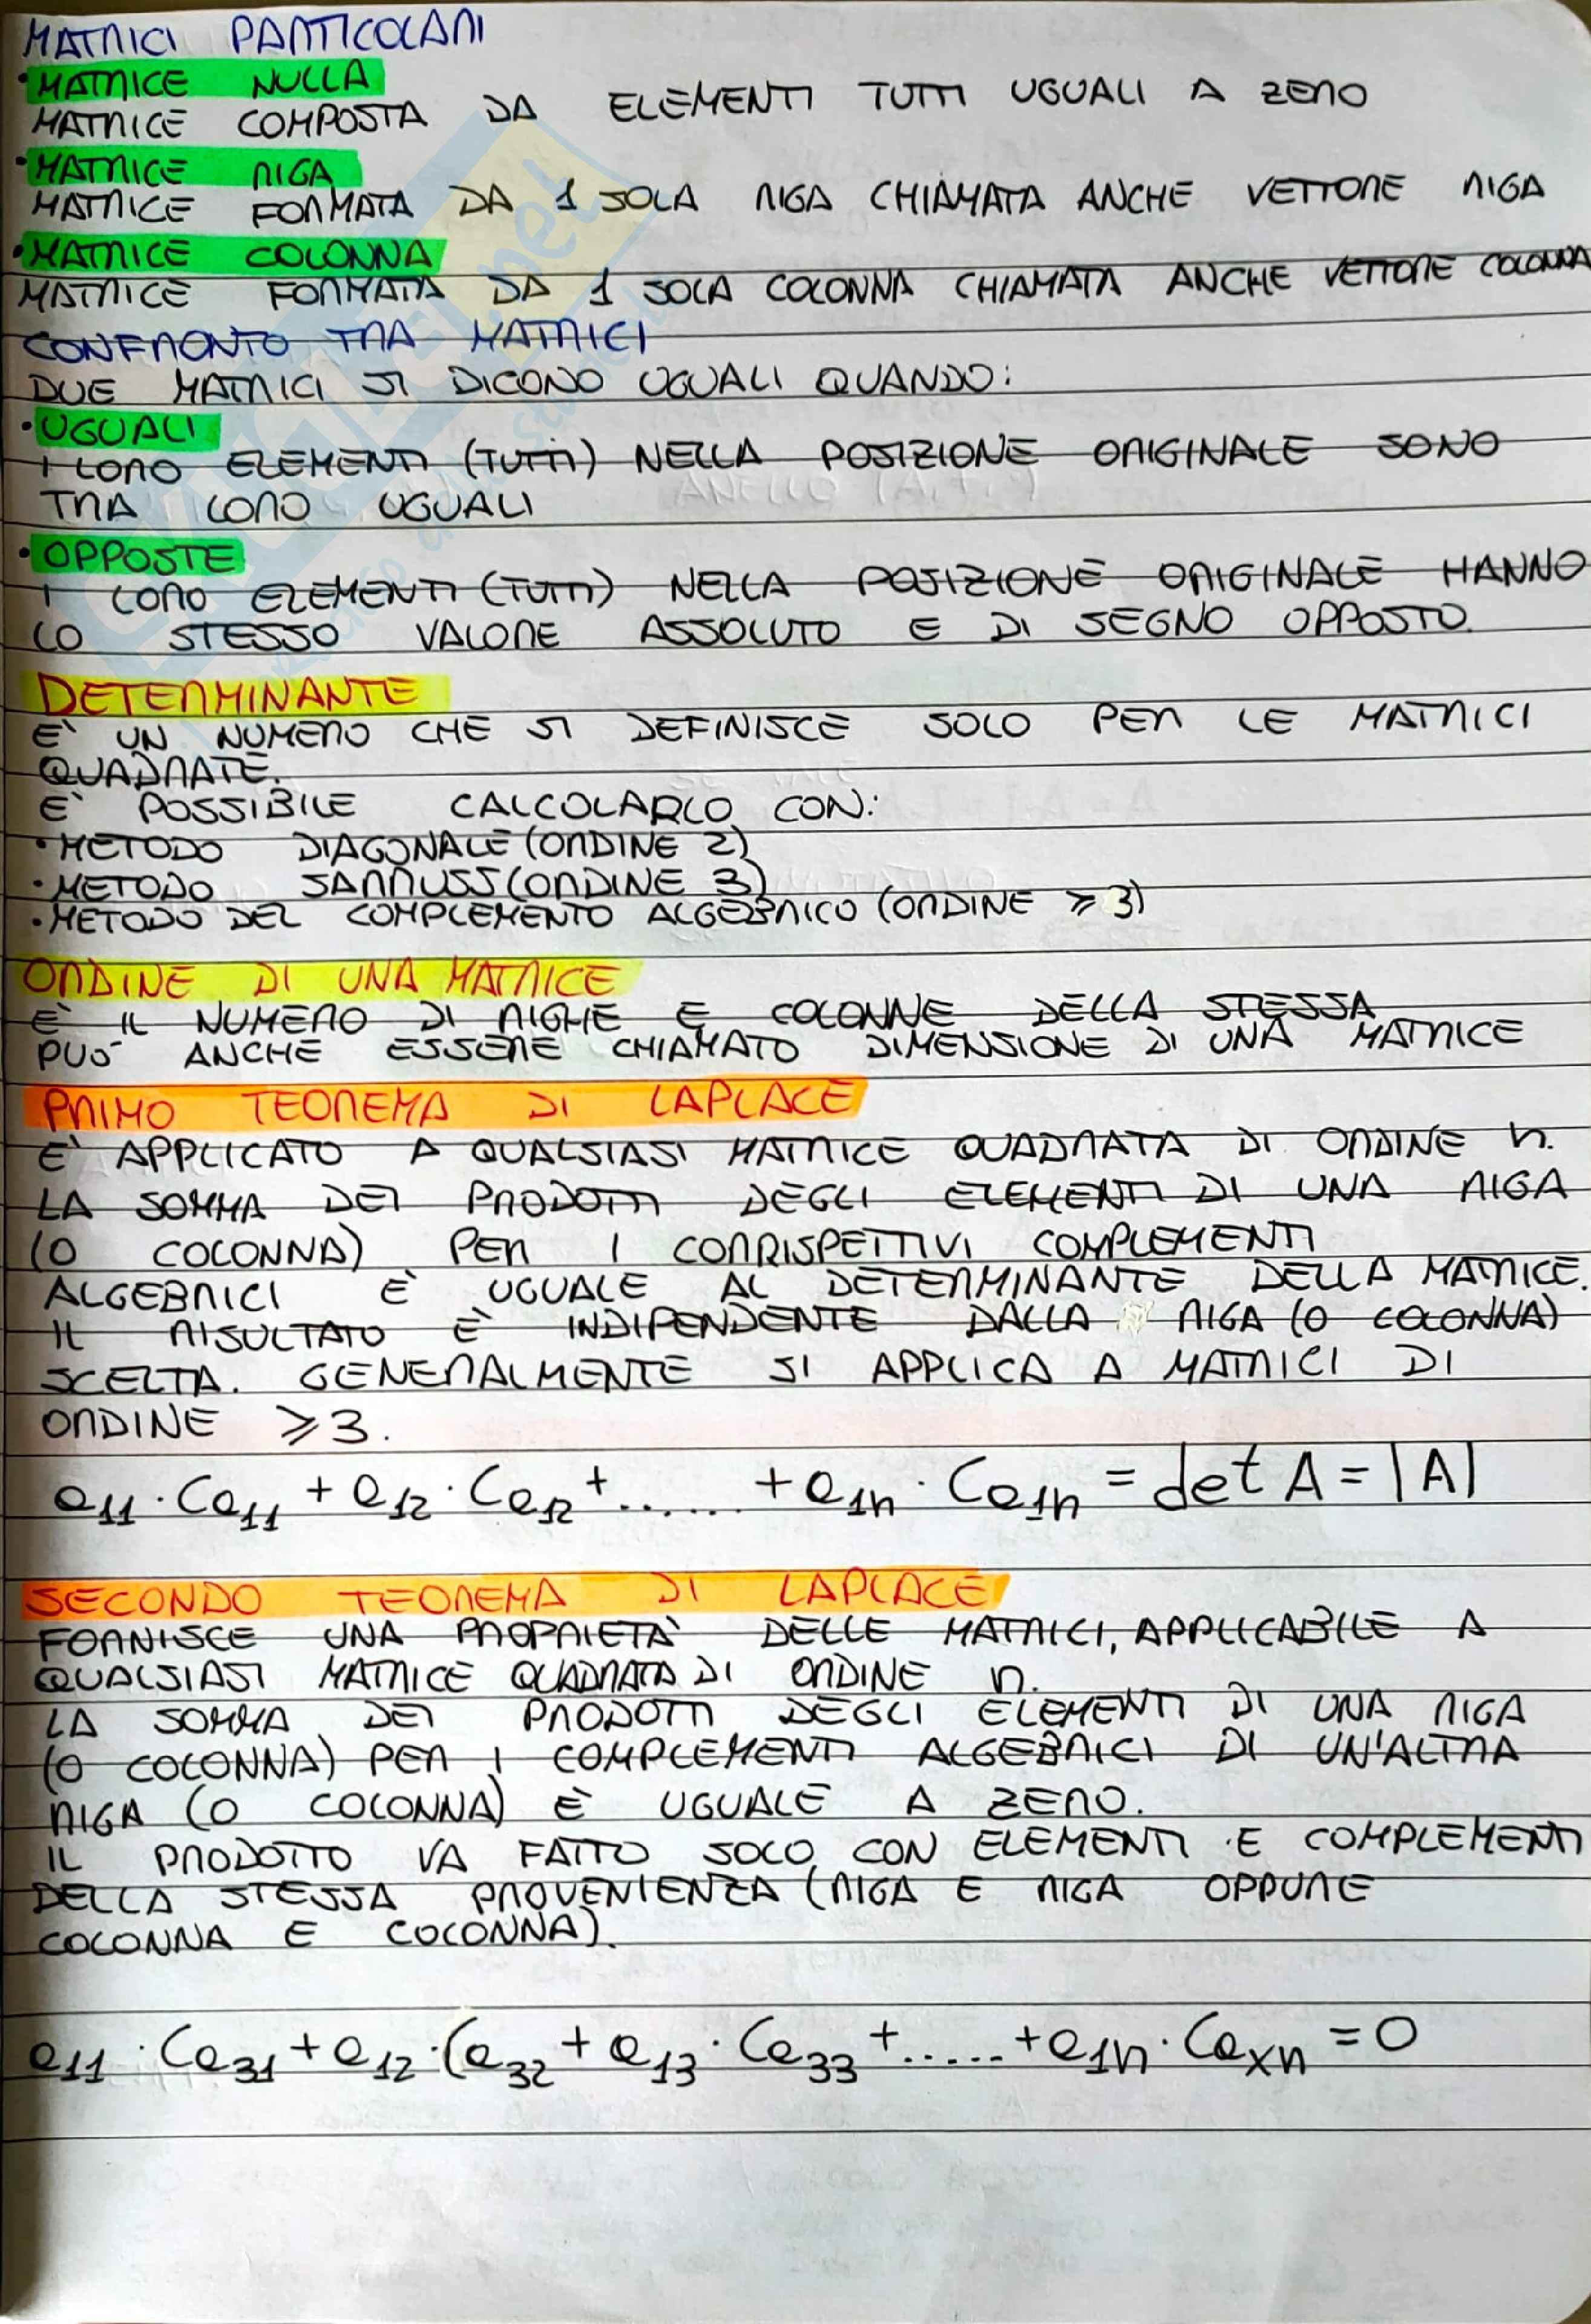 MATRICI PARTICOLARI
• MATRICE NULLA
MATRICE COMPOSTA DA ELEMENTI TUTTI UGUALI A ZERO
• MATRICE RIGA
MATRICE FORMATA DA 1 SOLA RIGA CHIAMATA ANCHE VETTORE RIGA
• MATRICE COLONNA
MATRICE FORMATA DA 1 SOLA COLONNA CHIAMATA ANCHE VETTORE COLONNA
CONFRONTO TRA MATRICI
DUE MATRICI SI DICONO UGUALI QUANDO:
• UGUALI
I LORO ELEMENTI (TUTTI) NELLA POSIZIONE ORIGINALE SONO
TRA LORO UGUALI
• OPPOSTE
I LORO ELEMENTI (TUTTI) NELLA POSIZIONE ORIGINALE HANNO
LO STESSO VALORE ASSOLUTO E DI SEGNO OPPOSTO.
DETERMINANTE
E' UN NUMERO CHE SI DEFINISCE SOLO PER LE MATRICI
QUADRATE.
E' POSSIBILE CALCOLARLO CON:
• METODO DIAGONALE (ORDINE 2)
• METODO SARRUSS (ORDINE 3)
• METODO DEL COMPLEMENTO ALGEBRICO (ORDINE ⩾ 3)
ORDINE DI UNA MATRICE
E' IL NUMERO DI RIGHE E COLONNE DELLA STESSA
PUO' ANCHE ESSERE CHIAMATO DIMENSIONE DI UNA MATRICE
PRIMO TEOREMA DI LAPLACE
E' APPLICATO A QUALSIASI MATRICE QUADRATA DI ORDINE n.
LA SOMMA DEI PRODOTTI DEGLI ELEMENTI DI UNA RIGA
(O COLONNA) PER I CORRISPETTIVI COMPLEMENTI
ALGEBRICI E' UGUALE AL DETERMINANTE DELLA MATRICE.
IL RISULTATO E' INDIPENDENTE DALLA RIGA (O COLONNA)
SCELTA. GENERALMENTE SI APPLICA A MATRICI DI
ORDINE ⩾ 3.
a₁₁ · Ca₁₁ + a₁₂ · Ca₁₂ + ...... + a₁ₙ · Ca₁ₙ = det A = |A|
SECONDO TEOREMA DI LAPLACE
FORNISCE UNA PROPRIETA' DELLE MATRICI, APPLICABILE A
QUALSIASI MATRICE QUADRATA DI ORDINE n.
LA SOMMA DEI PRODOTTI DEGLI ELEMENTI DI UNA RIGA
(O COLONNA) PER I COMPLEMENTI ALGEBRICI DI UN'ALTRA
RIGA (O COLONNA) E' UGUALE A ZERO.
IL PRODOTTO VA FATTO SOLO CON ELEMENTI E COMPLEMENTI
DELLA STESSA PROVENIENZA (RIGA E RIGA OPPURE
COLONNA E COLONNA).
a₁₁ · Ca₃₁ + a₁₂ · Ca₃₂ + a₁₃ · Ca₃₃ + ...... + a₁ₙ · Caₓₙ = 0